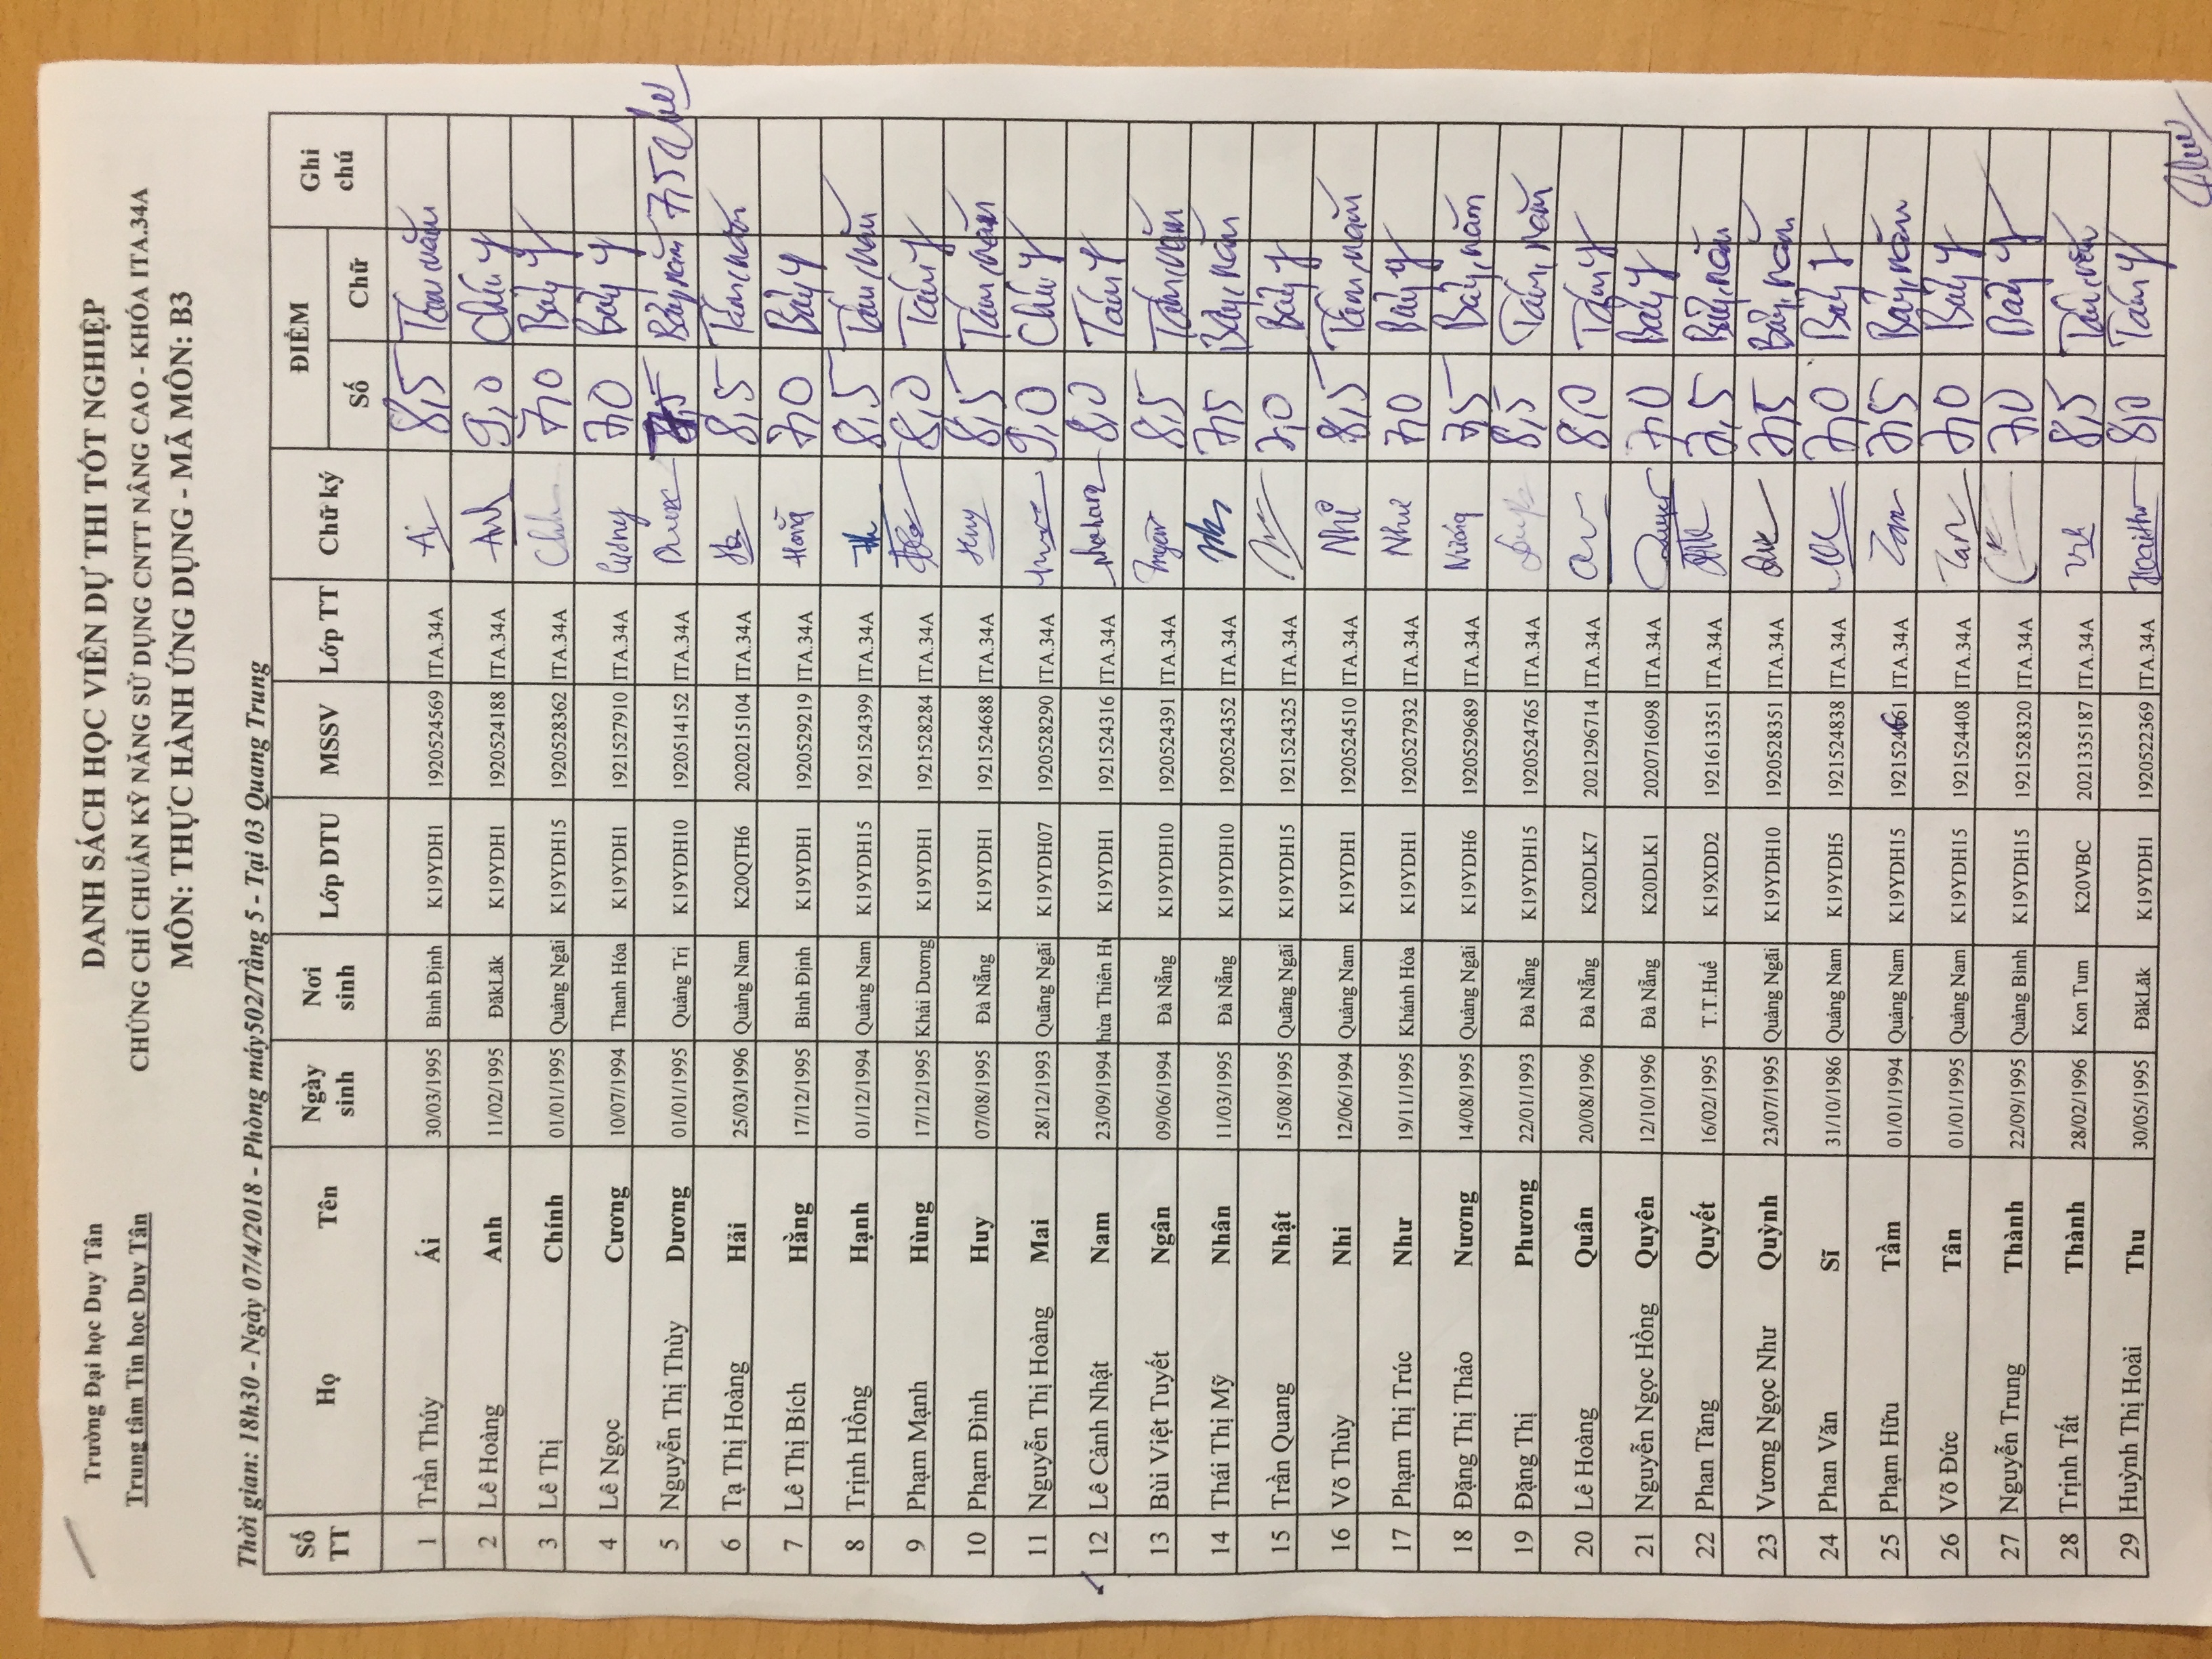 Trường Đại học Duy Tân
Trung tâm Tin học Duy Tân
DANH SÁCH HỌC VIÊN DỰ THI TỐT NGHIỆP
CHỨNG CHỈ CHUẨN KỸ NĂNG SỬ DỤNG CNTT NÂNG CAO - KHÓA ITA.34A
MÔN: THỰC HÀNH ỨNG DỤNG - MÃ MÔN: B3
Thời gian: 18h30 - Ngày 07/4/2018 - Phòng máy502/Tầng 5 - Tại 03 Quang Trung
Số TT Họ Tên Ngày sinh Nơi sinh Lớp DTU MSSV Lớp TT Chữ ký ĐIỂM Số Chữ Ghi chú
1 Trần Thúy Ái 30/03/1995 Bình Định K19YDH1 1920524569 ITA.34A Ái 8,5 Tám năm
2 Lê Hoàng Anh 11/02/1995 ĐăkLăk K19YDH1 1920524188 ITA.34A Anh 9,0 Chín y
3 Lê Thị Chính 01/01/1995 Quảng Ngãi K19YDH15 1920528362 ITA.34A 7,0 Bảy y
4 Lê Ngọc Cương 10/07/1994 Thanh Hóa K19YDH1 1921527910 ITA.34A Cương 7,0 Bảy y
5 Nguyễn Thị Thùy Dương 01/01/1995 Quảng Trị K19YDH10 1920514152 ITA.34A Bảy, năm 7,5
6 Tạ Thị Hoàng Hải 25/03/1996 Quảng Nam K20QTH6 2020215104 ITA.34A 8,5 Tám, năm
7 Lê Thị Bích Hằng 17/12/1995 Bình Định K19YDH1 1920529219 ITA.34A Hằng 7,0 Bảy y
8 Trịnh Hồng Hạnh 01/12/1994 Quảng Nam K19YDH15 1921524399 ITA.34A 8,5 Tám, năm
9 Phạm Mạnh Hùng 17/12/1995 Khải Dương K19YDH1 1921528284 ITA.34A 8,0 Tám y
10 Phạm Đình Huy 07/08/1995 Đà Nẵng K19YDH1 1921524688 ITA.34A Huy 8,5 Tám, năm
11 Nguyễn Thị Hoàng Mai 28/12/1993 Quãng Ngãi K19YDH07 1920528290 ITA.34A 9,0 Chín y
12 Lê Cảnh Nhật Nam 23/09/1994 hừa Thiên H K19YDH1 1921524316 ITA.34A 8,0 Tám y
13 Bùi Việt Tuyết Ngân 09/06/1994 Đà Nẵng K19YDH10 1920524391 ITA.34A Ngân 8,5 Tám, năm
14 Thái Thị Mỹ Nhân 11/03/1995 Đà Nẵng K19YDH10 1920524352 ITA.34A 7,5 Bảy, năm
15 Trần Quang Nhật 15/08/1995 Quãng Ngãi K19YDH15 1921524325 ITA.34A 7,0 Bảy y
16 Võ Thùy Nhi 12/06/1994 Quảng Nam K19YDH1 1920524510 ITA.34A Nhi 8,5 Tám, năm
17 Phạm Thị Trúc Như 19/11/1995 Khánh Hòa K19YDH1 1920527932 ITA.34A Như 7,0 Bảy y
18 Đặng Thị Thảo Nương 14/08/1995 Quảng Ngãi K19YDH6 1920529689 ITA.34A Nương 7,5 Bảy, năm
19 Đặng Thị Phương 22/01/1993 Đà Nẵng K19YDH15 1920524765 ITA.34A 8,5 Tám, năm
20 Lê Hoàng Quân 20/08/1996 Đà Nẵng K20DLK7 2021296714 ITA.34A 8,0 Tám y
21 Nguyễn Ngọc Hồng Quyên 12/10/1996 Đà Nẵng K20DLK1 2020716098 ITA.34A 7,0 Bảy y
22 Phan Tăng Quyết 16/02/1995 T.T.Huế K19XDD2 1921613351 ITA.34A 7,5 Bảy, năm
23 Vương Ngọc Như Quỳnh 23/07/1995 Quảng Ngãi K19YDH10 1920528351 ITA.34A 7,5 Bảy, năm
24 Phan Văn Sĩ 31/10/1986 Quảng Nam K19YDH5 1921524838 ITA.34A 7,0 Bảy y
25 Phạm Hữu Tâm 01/01/1994 Quảng Nam K19YDH15 1921524661 ITA.34A 7,5 Bảy, năm
26 Võ Đức Tân 01/01/1995 Quảng Nam K19YDH15 1921524408 ITA.34A Tân 7,0 Bảy y
27 Nguyễn Trung Thành 22/09/1995 Quảng Bình K19YDH15 1921528320 ITA.34A 7,0 Bảy y
28 Trịnh Tất Thành 28/02/1996 Kon Tum K20VBC 2021335187 ITA.34A 8,5 Tám, năm
29 Huỳnh Thị Hoài Thu 30/05/1995 ĐăkLăk K19YDH1 1920522369 ITA.34A HoaiThu 8,0 Tám y